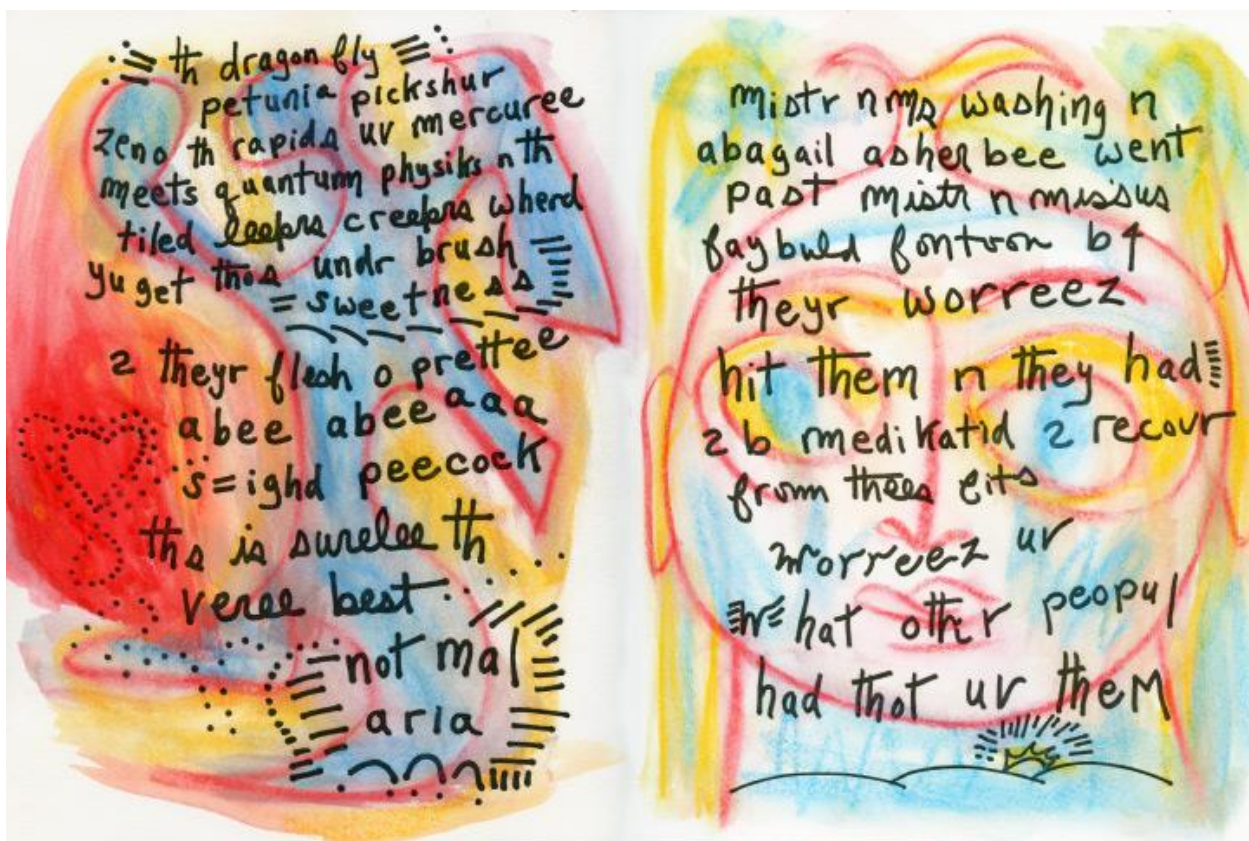 th dragon fly
petunia pickshur
zeno th rapids uv mercuree
meets quantum physiks n th
tiled leepers creepers wherd
yu get thos undr brush
= sweetness
2 theyr flesh o prettee
abee abee aaa
s=ighd peecock
ths is surelee th
veree best
not mal
aria
mistr n ms washing n
abagail asher bee went
past mistr n missus
faybuld fontron b4
theyr worreez
hit them n they had
2 b medikatid 2 recovr
from thees eits
worreez uv
what othr peopul
had thot uv them